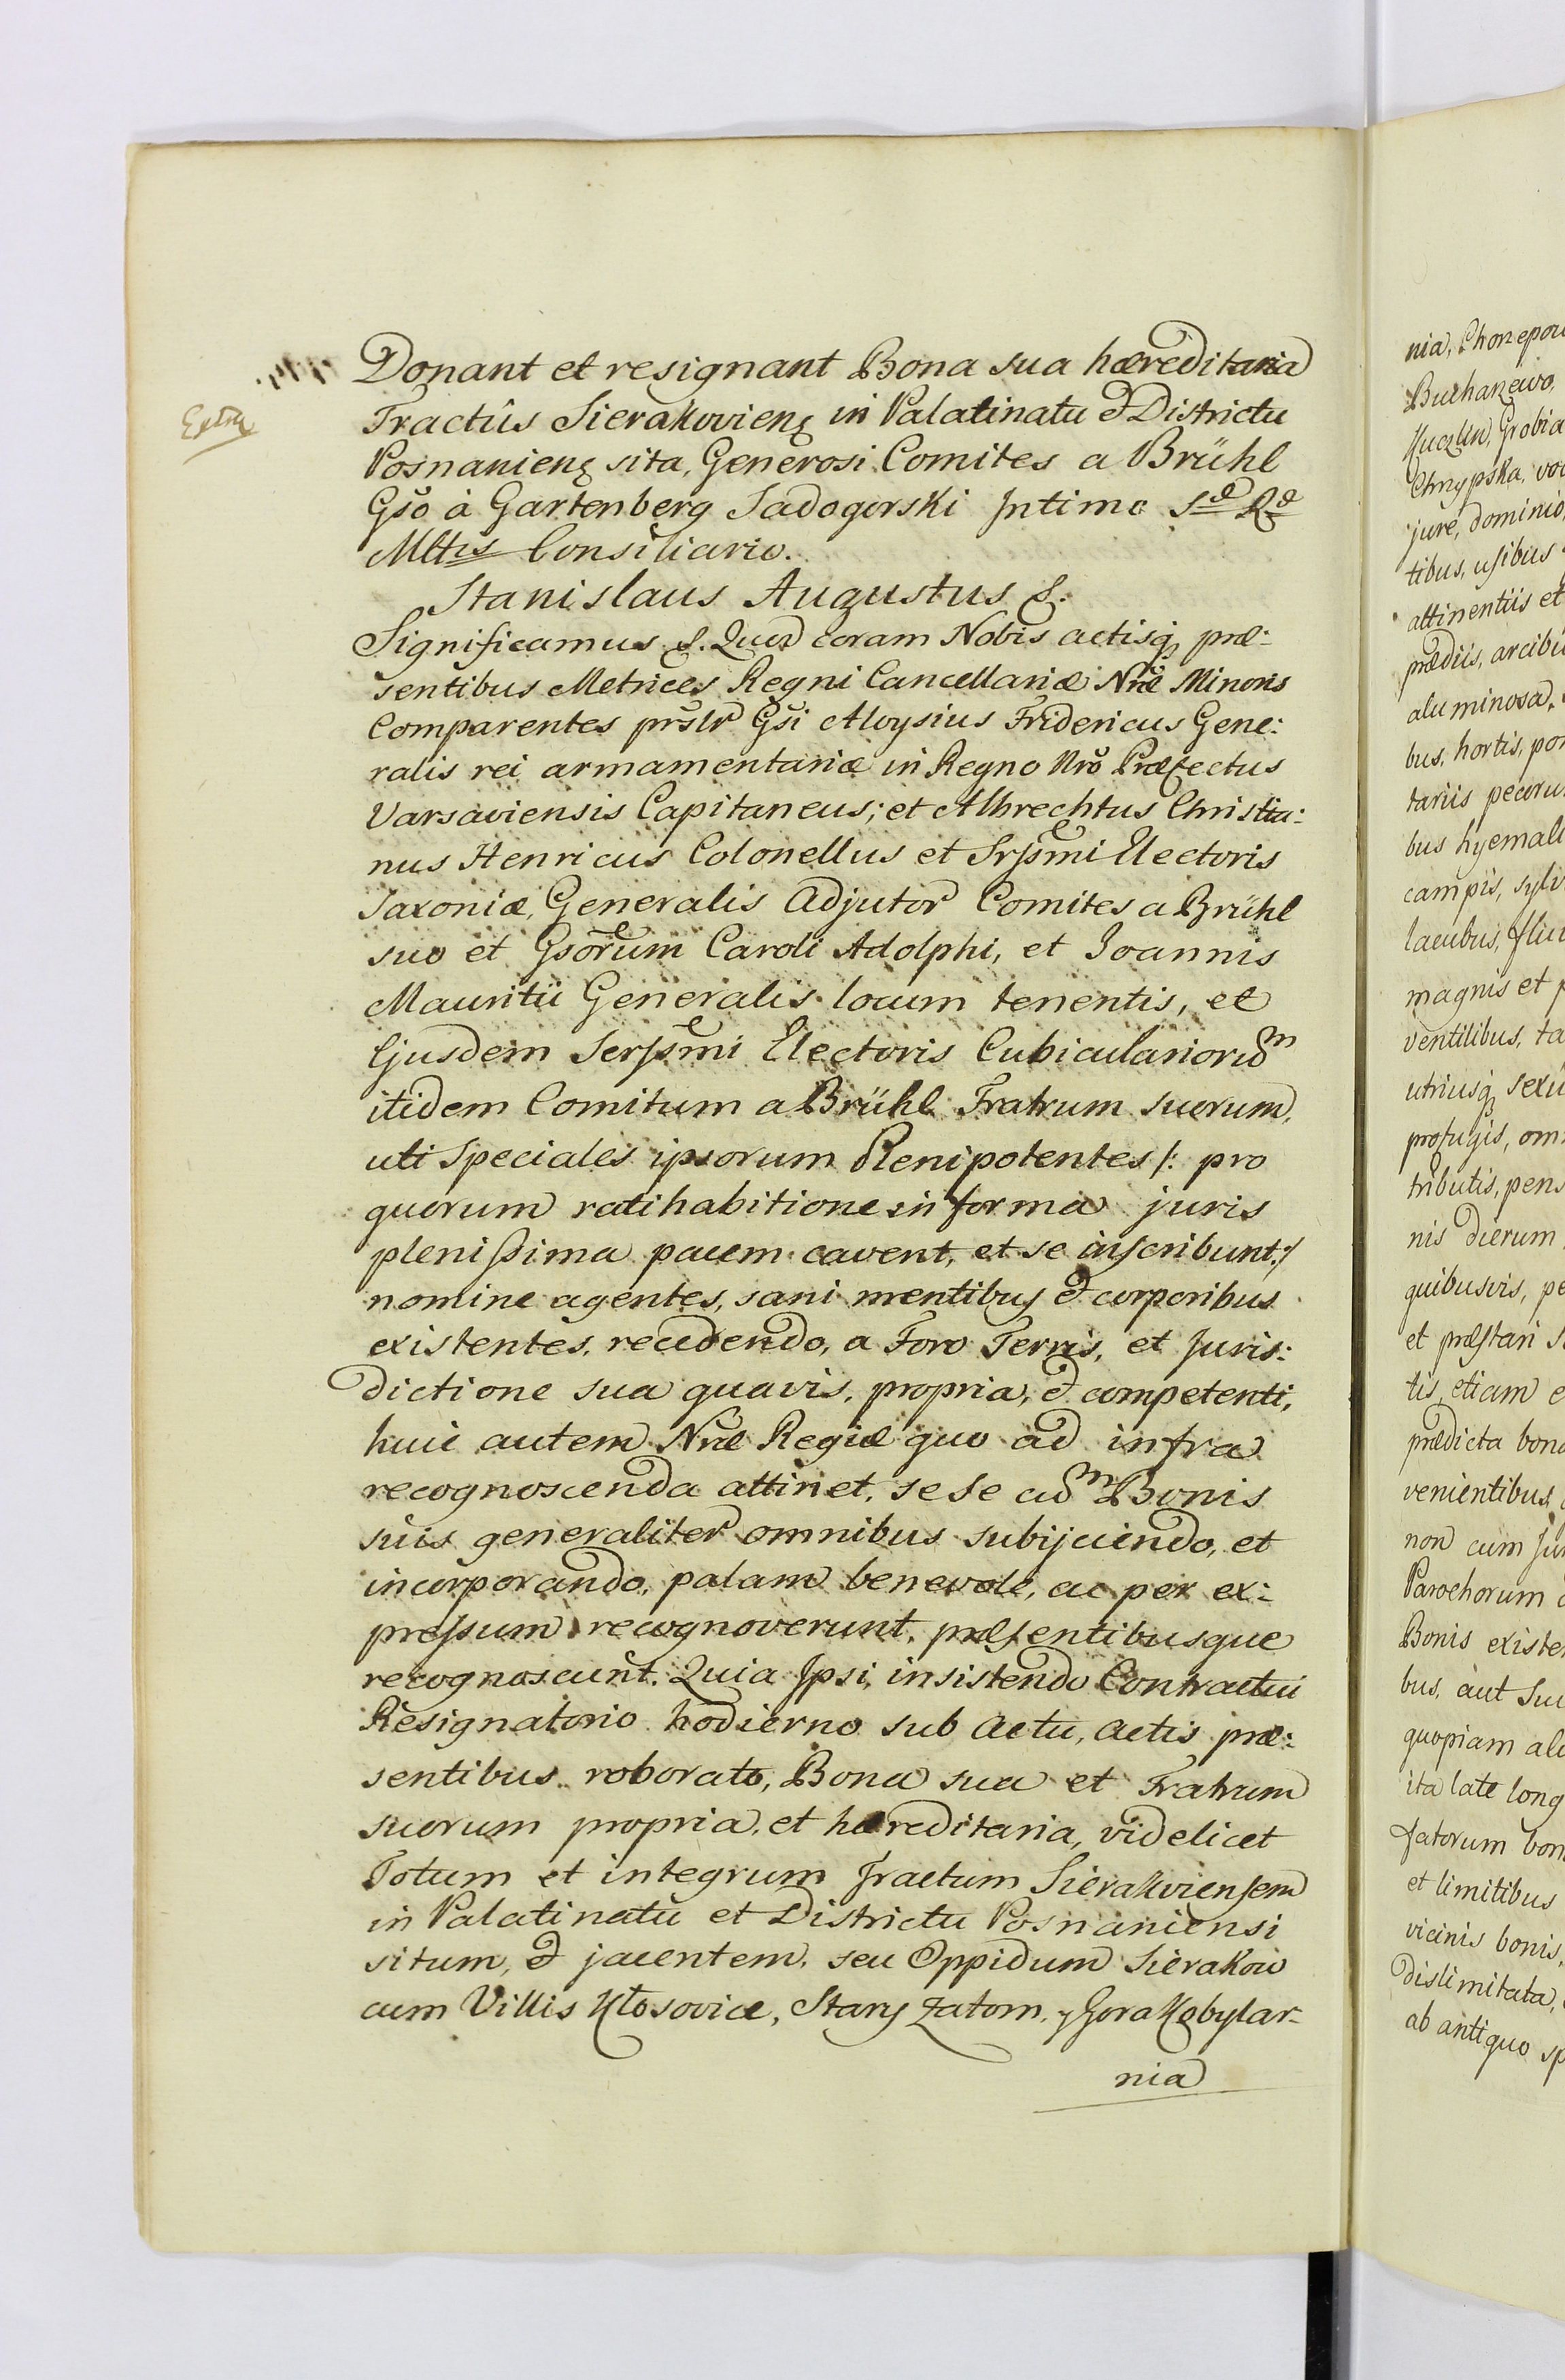 Donant et resignant Bona sua hæreditaria
Extra
Tractûs Sierakovieng in Palatinatu & Districtu
Posnanieng sita, Generosi Comites a Brühl
Gso à Gartenberg Sadogorski Intimo Sæ Ræ
Mttis Consiliario.
Stanislaus Augustus &.
Significamus &. Quod coram Nobis actisq præ:
sentibus Metrices Regni Cancellariæ Nræ Minoris
Comparentes prslr Gsi Aloysius Fridericus Gene:
ralis rei armamentariæ in Regno Nro Præfectus
Varsaviensis Capitaneus; et Albrechtus Christia:
nus Henricus Colonellus et Srssmi Electoris
Saxoniæ, Generalis Adjutor Comites a Brühl
suo et Gsorum Caroli Adolphi, et Joannis
Mauritii Generalis locum tenentis, et
Ejusdem Serssmi Electoris Cubiculariorum
itidem Comitum a Brühl Fratrum suorum,
uti Speciales ipsorum Plenipotentes /: pro
quorum ratihabitione in forma juris
plenissima pacem cavent, et se inscribunt:/
nomine agentes, sani mentibus & corporibus
existentes, recedendo, a Foro Terris, et Juris:
dictione sua quavis, propria, & competenti,
huic autem Nræ Regiæ quo ad infra
recognoscenda attinet, sese cum Bonis
suis generaliter omnibus subijciendo, et
incorporando, palam benevole, ac per ex:
pressum recognoverunt, præsentibusque
recognoscunt. Quia Ipsi, insistendo Contractui
Resignatorio hodierno sub Actu, Actis præ:
sentibus roborato, Bona sua et Fratrum
suorum propria, et hæreditaria, videlicet
Totum et integrum Tractum Sierakoviensem
in Palatinatu et Districtu Posnaniensi
situm, & jacentem, seu Oppidum Sierakow
cum Villis Kłosovice, Stary Zatom, y Gora Kobylar-
nia
nia,
Buchanewo,
Kuczlin, Grobia
Chrzypska,
jure, dominio,
tibus, usibus
attinentiis et
prædiis,
aluminosa,
bus, hortis,
tariis
bus
campis,
lacubus,
magnis et
ventilibus,
utriusq
profugis,
tributis,
nis dierum
quibusvis,
et præstari
tis, etiam
prædicta
venientibus
non cum
Parochorum
Bonis
bus, aut
quopiam
ita late
fatorum
et limitibus
vicinis bonis,
dislimitata,
ab antiquo